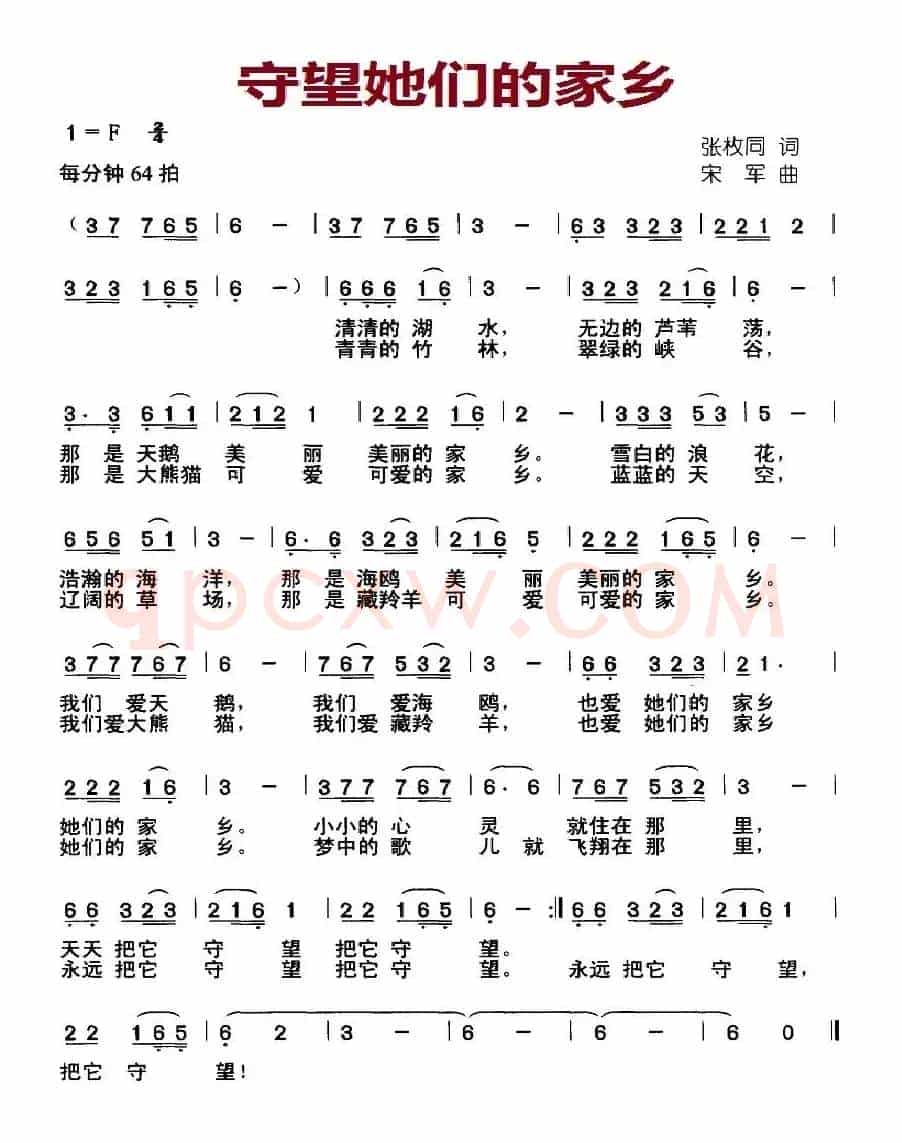 守望她们的家乡
1=F 2/4
张枚同 词
每分钟64拍
宋 军 曲
(37 765 | 6 - | 37 765 | 3 - | 63 323 | 221 2 |
323 165 | 6 - ) | 666 16 | 3 - | 323 216 | 6 - |
清清的 湖 水, 无边的 芦苇 荡,
青青的 竹 林, 翠绿的 峡 谷,
3· 3 611 | 212 1 | 222 16 | 2 - | 333 53 | 5 - |
那 是 天鹅 美 丽 美丽的 家 乡。 雪白的 浪 花,
那 是 大熊猫 可 爱 可爱的 家 乡。 蓝蓝的 天 空,
656 51 | 3 - | 6· 6 323 | 216 5 | 222 165 | 6 - |
浩瀚的 海 洋, 那 是 海鸥 美 丽 美丽的 家 乡。
辽阔的 草 场, 那 是 藏羚羊 可 爱 可爱的 家 乡。
qpcxw.COM
377 767 | 6 - | 767 532 | 3 - | 66 323 | 21· |
我们 爱天 鹅, 我们 爱海 鸥, 也爱 她们的 家乡
我们爱大熊 猫, 我们爱 藏羚 羊, 也爱 她们的 家乡
222 16 | 3 - | 377 767 | 6· 6 | 767 532 | 3 - |
她们的 家 乡。 小小的 心 灵 就住在 那 里,
她们的 家 乡。 梦中的 歌 儿 就 飞翔在 那 里,
66 323 | 216 1 | 22 165 | 6 - :‖ 66 323 | 216 1 |
天天 把它 守 望 把它 守 望。
永远 把它 守 望 把它 守 望。 永远 把它 守 望,
22 165 | 6 2 | 3 - | 6 - | 6 - | 6 0 ‖
把它 守 望!